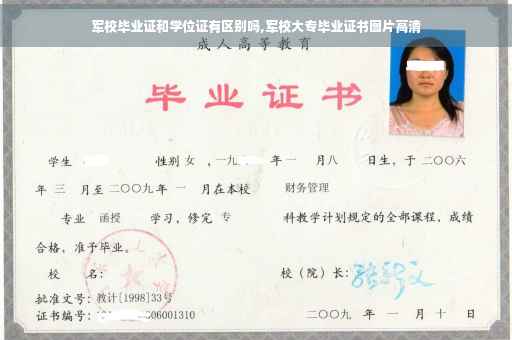 军校毕业证和学位证有区别吗,军校大专毕业证书图片高清
成人高等教育
毕业证书
学生 性别 女 ,一九 年 一 月 八 日生,于 二〇〇六
年 三 月至 二〇〇九 年 一 月在本校 财务管理
专业 函授 学习,修完 专 科教学计划规定的全部课程,成绩
合格,准予毕业。
校 名: 校(院)长:
批准文号:教计[1998]33号
证书编号: 06001310 二〇〇九 年 一 月 十 日